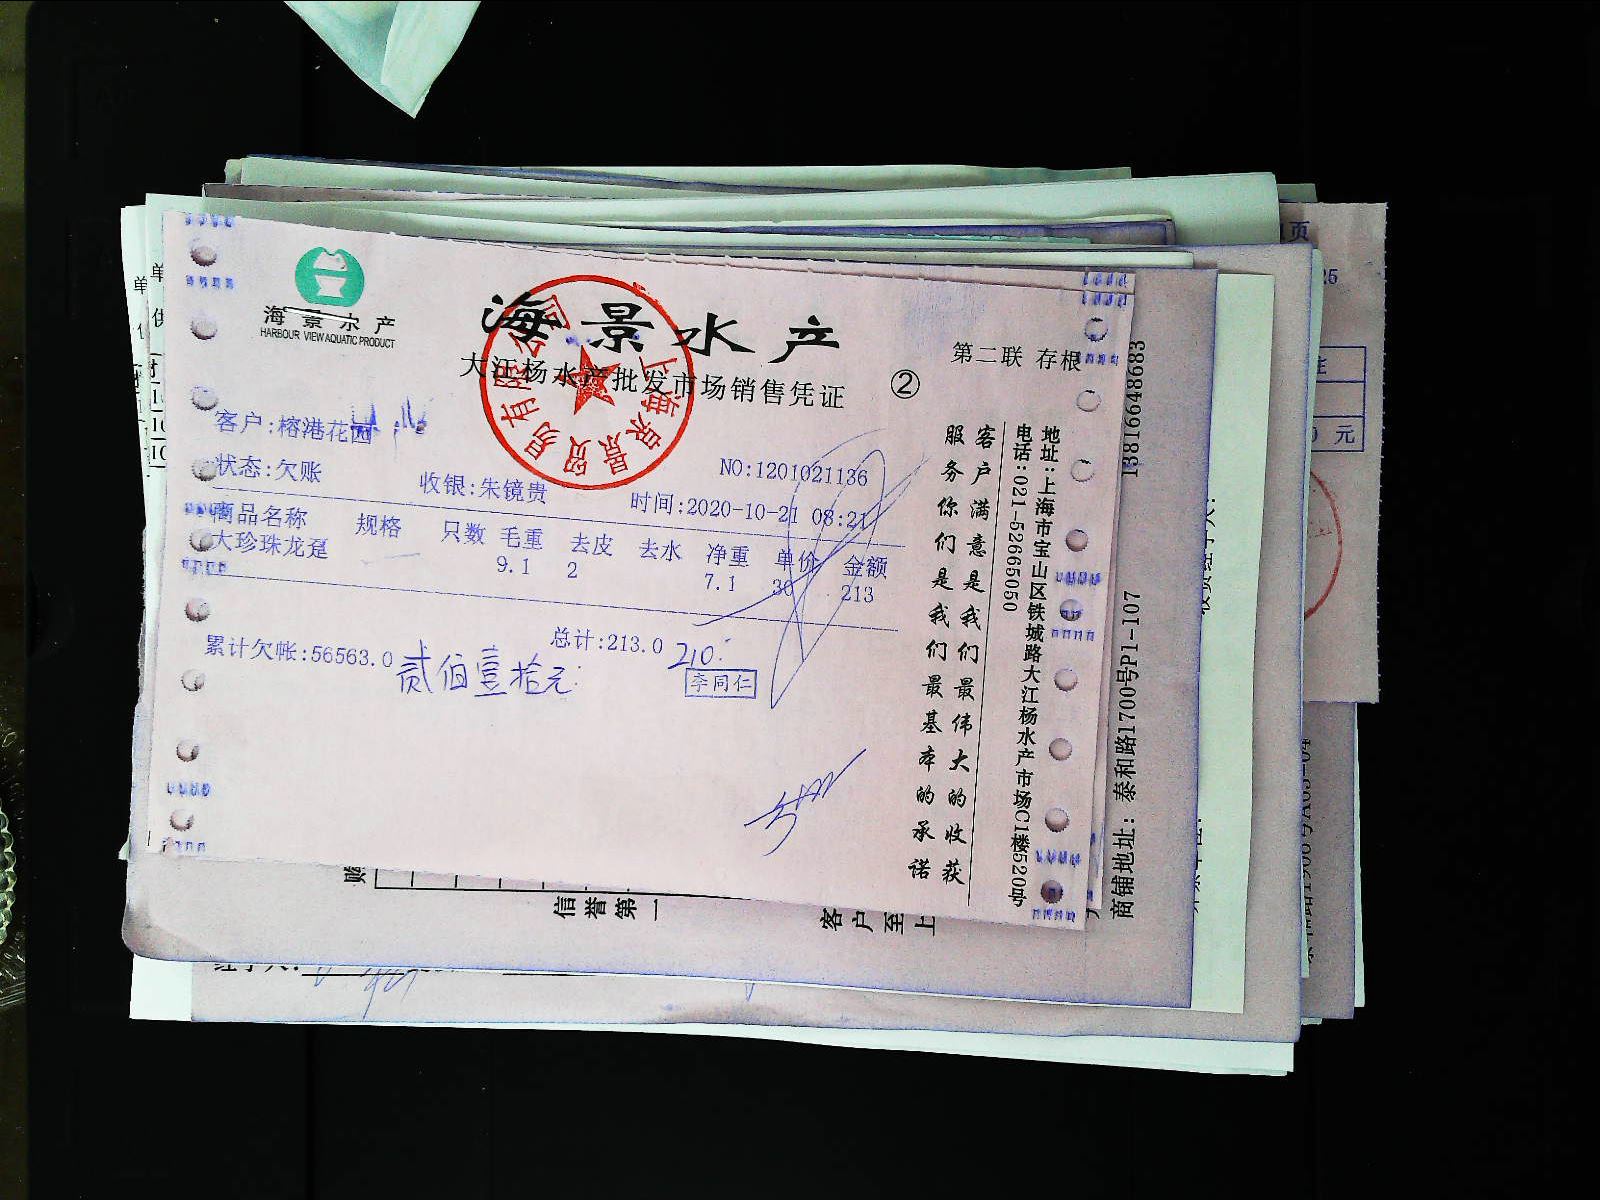 海景水产
HARBOUR VIEW AQUATIC PRODUCT
海景水产
大江杨水产批发市场销售凭证
②
第二联 存根
客户:榕港花园
状态:欠账
收银:朱镜贵
NO:1201021136
时间:2020-10-21 08:21
商品名称 规格 只数 毛重 去皮 去水 净重 单价 金额
大珍珠龙趸 9.1 2 7.1 30 213
累计欠帐:56563.0
总计:213.0
210.
贰佰壹拾元
李同仁
客户满意是我们最伟大的收获
服务你们是我们最基本的承诺
地址:上海市宝山区铁城路大江杨水产市场C1楼520号
电话:021-52665050
13816648683
商铺地址:泰和路1700号P1-107
信誉第一
客户至上
元